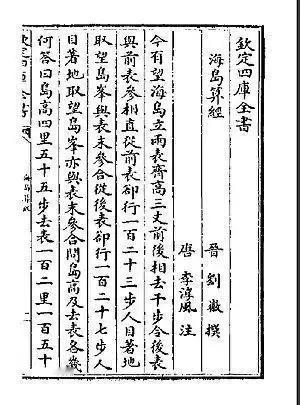 欽定四庫全書
海島算經
晉 劉徽 撰
唐 李淳風 注
今有望海島立兩表齊高三丈前後相去千步令後表
與前表參相直從前表却行一百二十三步人目著地
取望島峯與表末參合從後表却行一百二十七步人
目著地取望島峯亦與表末參合問島高及去表各幾
何答曰島高四里五十五步去表一百二里一百五十
海島算經